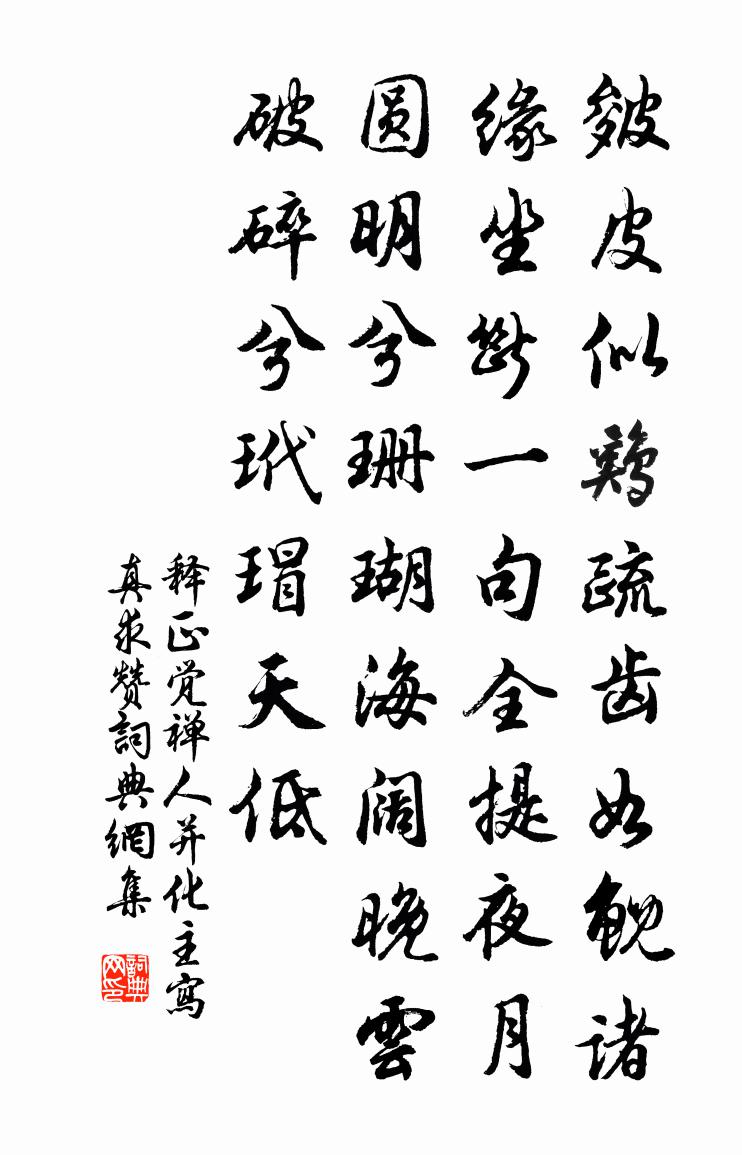 皴皮似鷄疏齿如鲵诸
缘坐断一句全提夜月
圆明兮珊瑚海阔晚雲
破碎兮玳瑁天低
释正觉禅人并化主寫
真求赞詞典網集
詞典网印